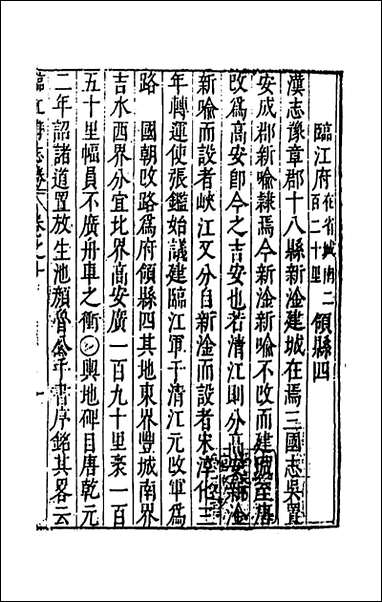 臨江府在省城南二百二十里領縣四
漢志豫章郡十八縣新淦建城在焉三國志吳置
安成郡新喻隸焉今新淦新喻不改而建城至唐
改爲高安卽今之吉安也若清江則分高安新淦
新喻而設者峽江又分自新淦而設者宋淳化三
年轉運使張鑑始議建臨江軍于清江元改軍爲
路　國朝改路爲府領縣四其地東界豐城南界
吉水西界分宜北界高安廣一百九十里袤一百
五十里幅員不廣舟車之衝〇輿地碑目唐乾元
二年詔諸道置放生池顏魯公手書序銘其畧云